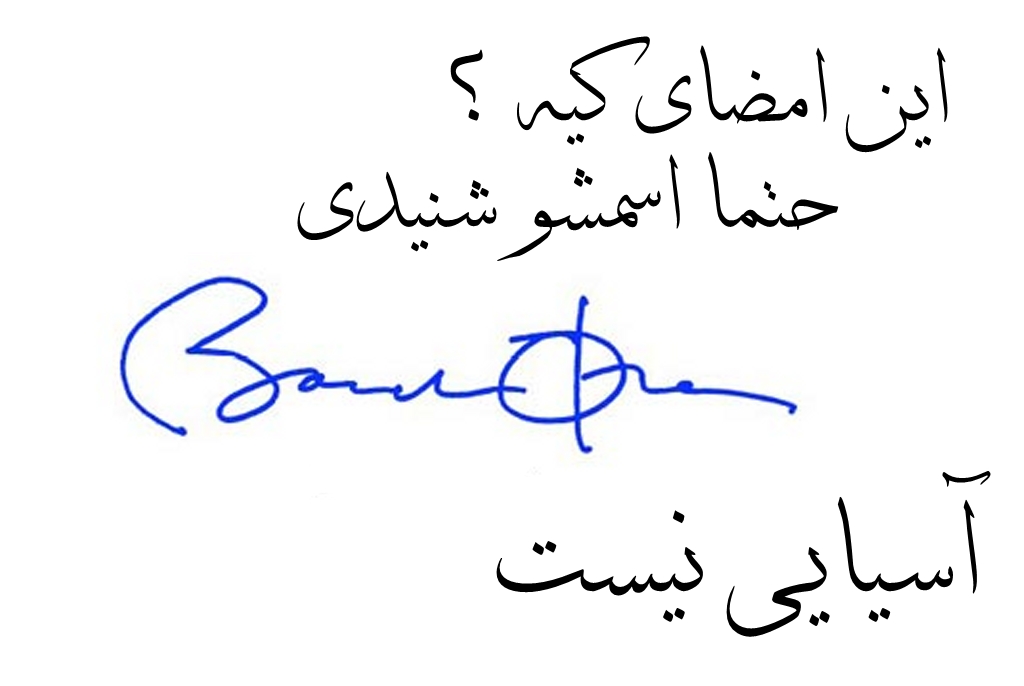 این امضای کیه ؟
حتما اسمشو شنیدی
Barack Obama
آسیایی نیست